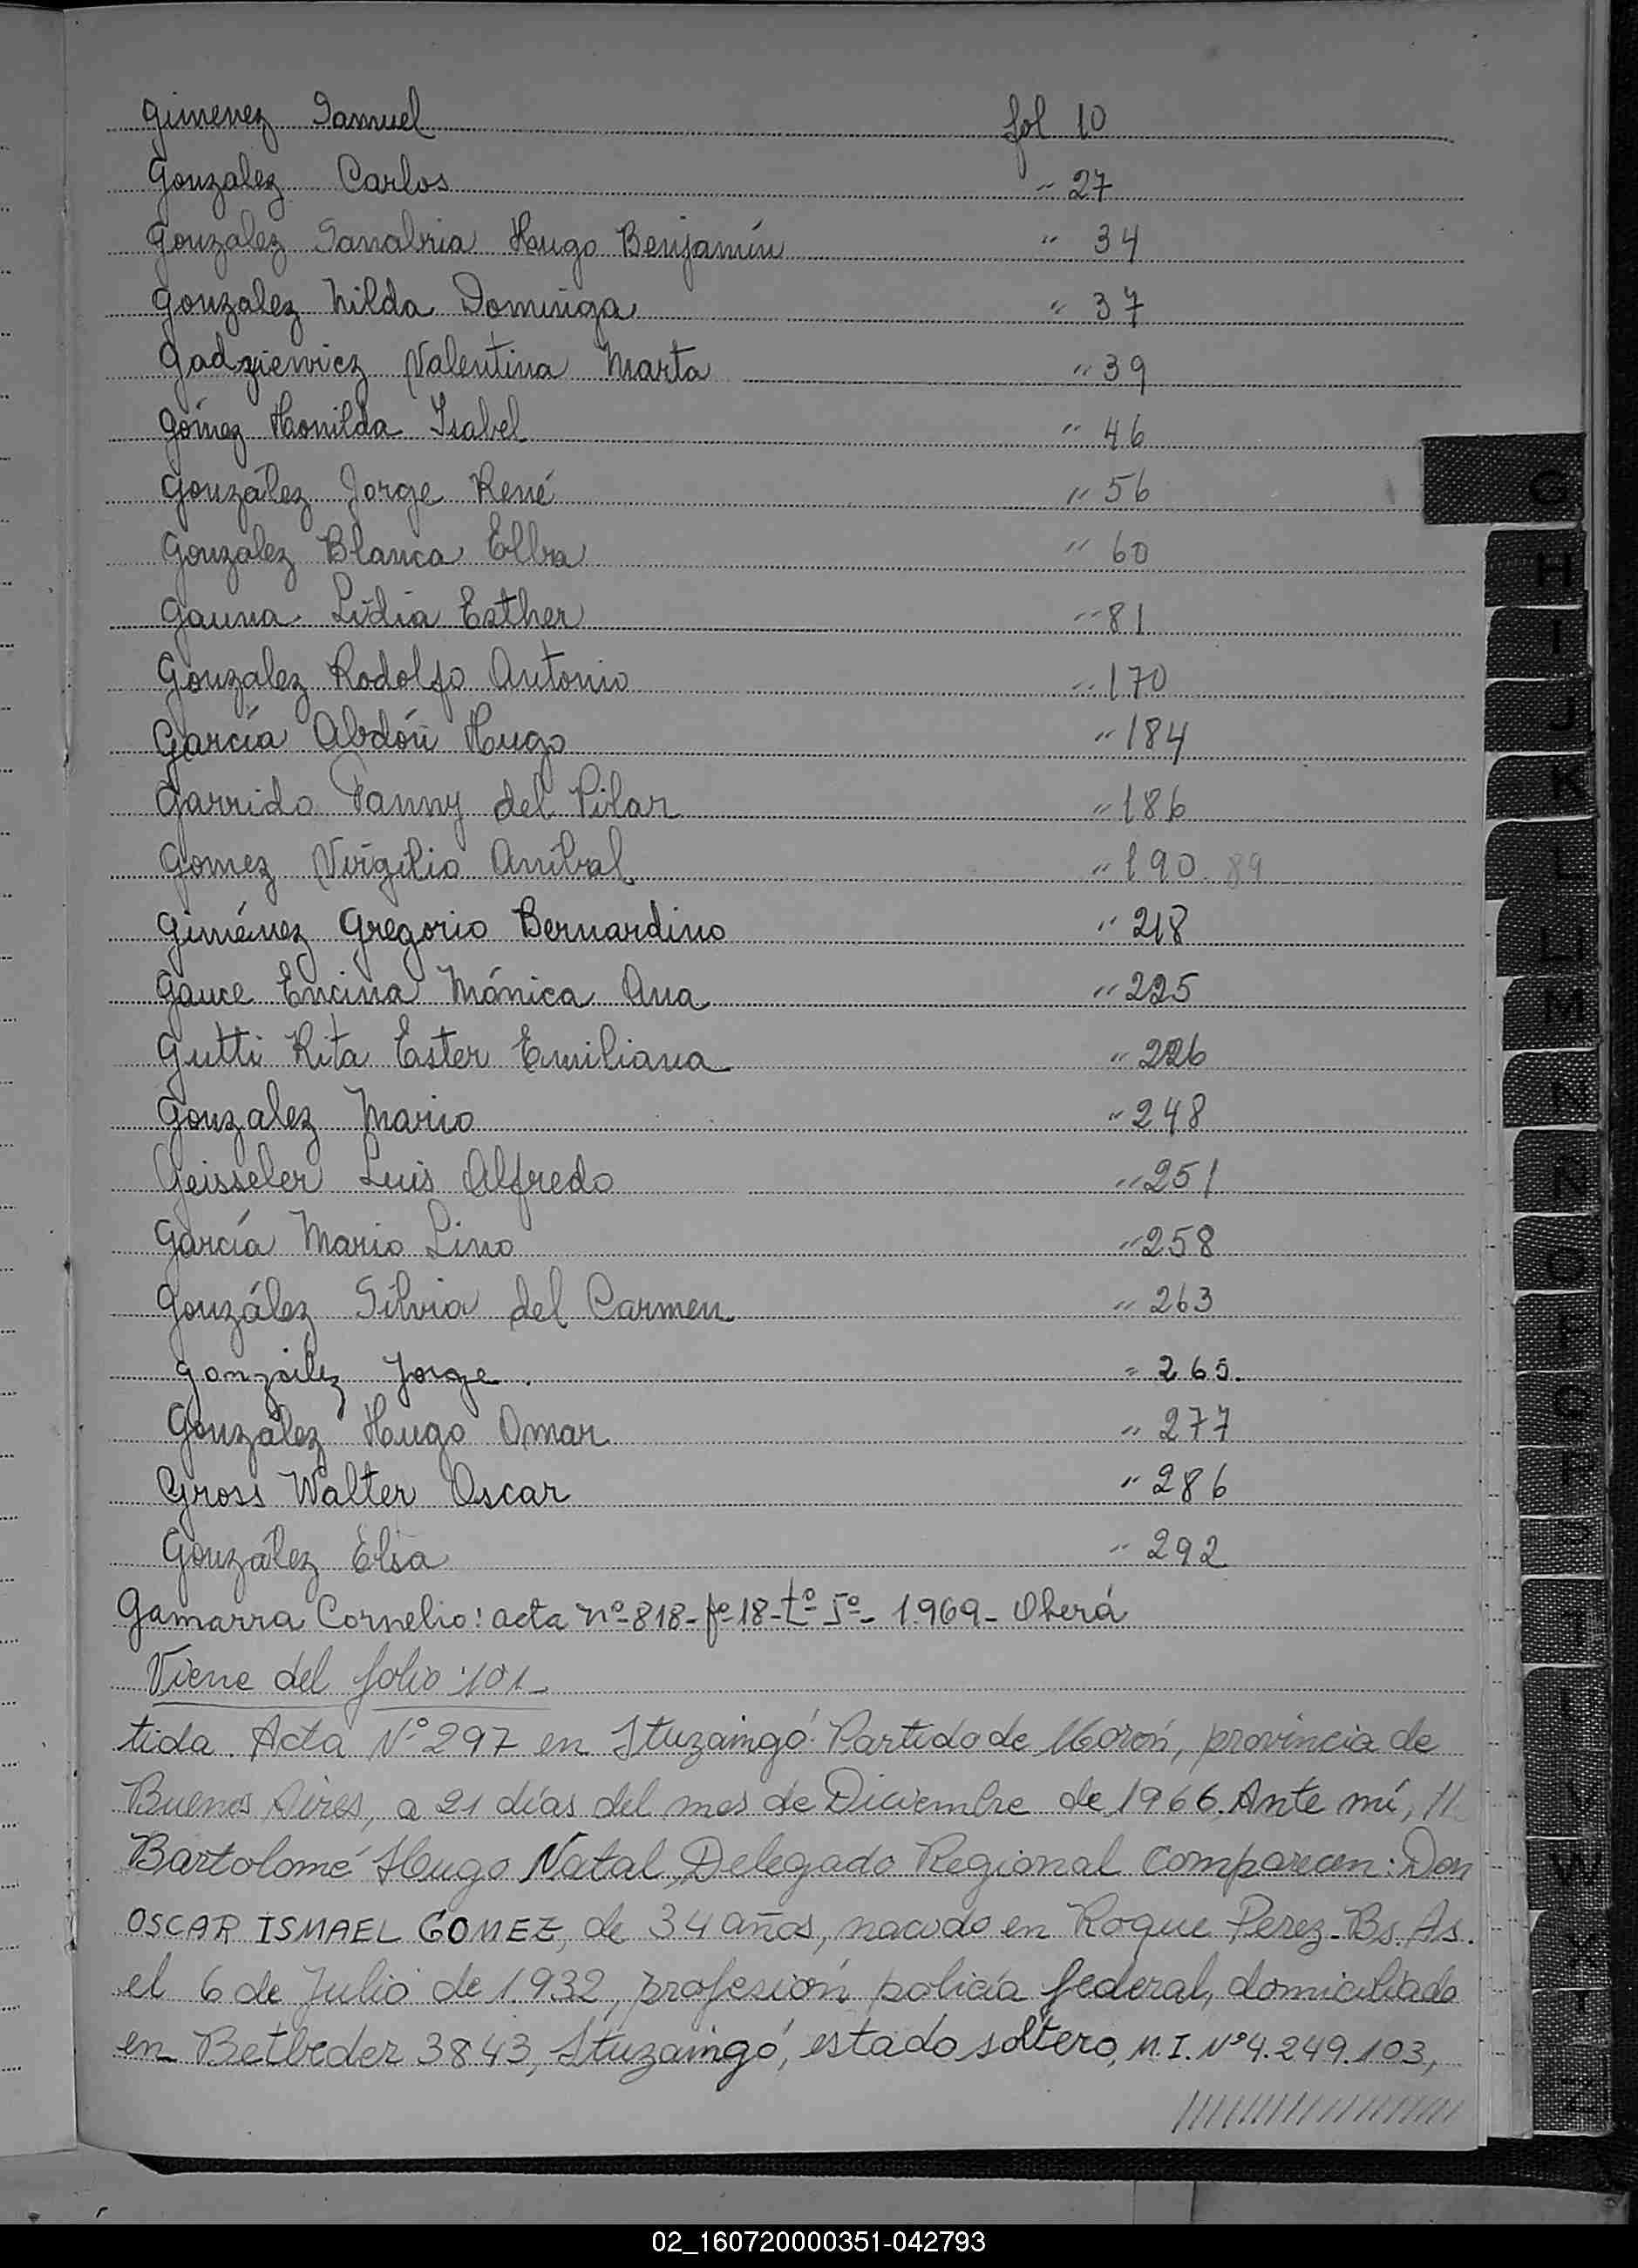 Gimenez Samuel fol 10
Gonzalez Carlos " 27
Gonzalez Sanabria Hugo Benjamín " 34
Gonzalez Nilda Dominga " 37
Gadziewicz Valentina Marta " 39
Gómez Monilda Isabel " 46
González Jorge René " 56
Gonzalez Blanca Elba " 60
Gauna Lidia Esther " 81
Gonzalez Rodolfo Antonio " 170
García Abdón Hugo " 184
Garrido Fanny del Pilar " 186
Gomez Virgilio Anibal " 190 89
Giménez Gregorio Bernardino " 218
Gauce Encina Mónica Ana " 225
Gutti Rita Ester Emiliana " 226
Gonzalez Mario " 248
Geisseler Luis Alfredo " 251
García Mario Lino " 258
González Silvia del Carmen " 263
González Jorge. " 265.
González Hugo Omar " 277
Gross Walter Oscar " 286
González Elsa " 292
Gamarra Cornelio: acta nº-818-fº-18-tº-5º-1.969-Oberá
Viene del folio 101-
tida. Acta Nº 297 en Ituzaingó Partido de Morón, provincia de
Buenos Aires, a 21 días del mes de Diciembre de 1966. Ante mí,
Bartolomé Hugo Natal, Delegado Regional comparecen: Don
OSCAR ISMAEL GOMEZ, de 34 años, nacido en Roque Perez-Bs. As.
el 6 de Julio de 1.932, profesión policía federal, domiciliado
en Betbeder 3843, Ituzaingó, estado soltero, M.I. Nº 4.249.103,
G
H
I
J
K
L
LL
M
N
Ñ
O
P
Q
R
S
T
U
V
W
X
Y
Z
02_160720000351-042793